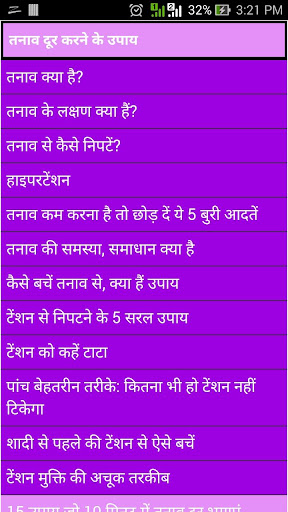 32% 3:21 PM
तनाव दूर करने के उपाय
तनाव क्या है?
तनाव के लक्षण क्या हैं?
तनाव से कैसे निपटें?
हाइपरटेंशन
तनाव कम करना है तो छोड़ दें ये 5 बुरी आदतें
तनाव की समस्या, समाधान क्या है
कैसे बचें तनाव से, क्या हैं उपाय
टेंशन से निपटने के 5 सरल उपाय
टेंशन को कहें टाटा
पांच बेहतरीन तरीके: कितना भी हो टेंशन नहीं
टिकेगा
शादी से पहले की टेंशन से ऐसे बचें
टेंशन मुक्ति की अचूक तरकीब
15 उपाय जो 10 मिनट में तनाव दूर